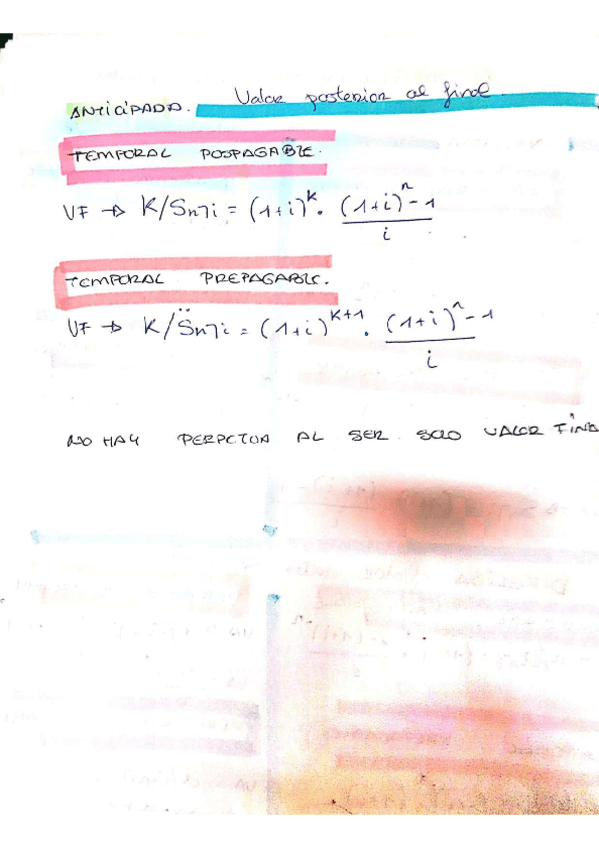 ANTICIPADA. Valor posterior al final.
TEMPORAL POSPAGABLE.
VF → K/Sn¬i = (1+i)^K · ((1+i)^n - 1)/i
TEMPORAL PREPAGABLE.
VF → K/S̈n¬i = (1+i)^(K+1) · ((1+i)^n - 1)/i
NO HAY PERPETUA AL SER SOLO VALOR FINA